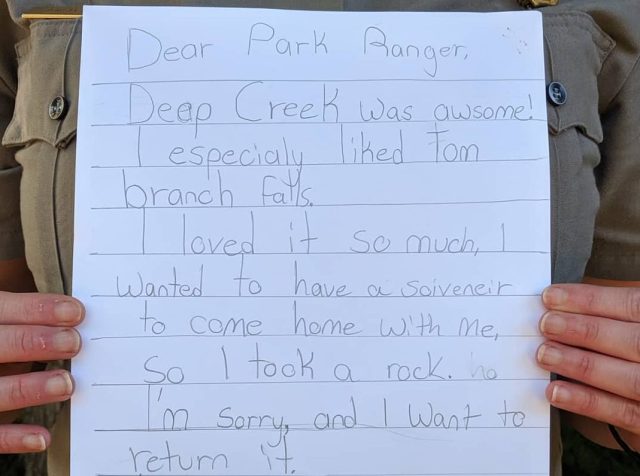 Dear Park Ranger,
Deep Creek was awsome!
I especialy liked Tom
branch falls.
I loved it so much, I
wanted to have a soiveneir
to come home with me,
So I took a rock. ho
I'm sorry, and I want to
return it.